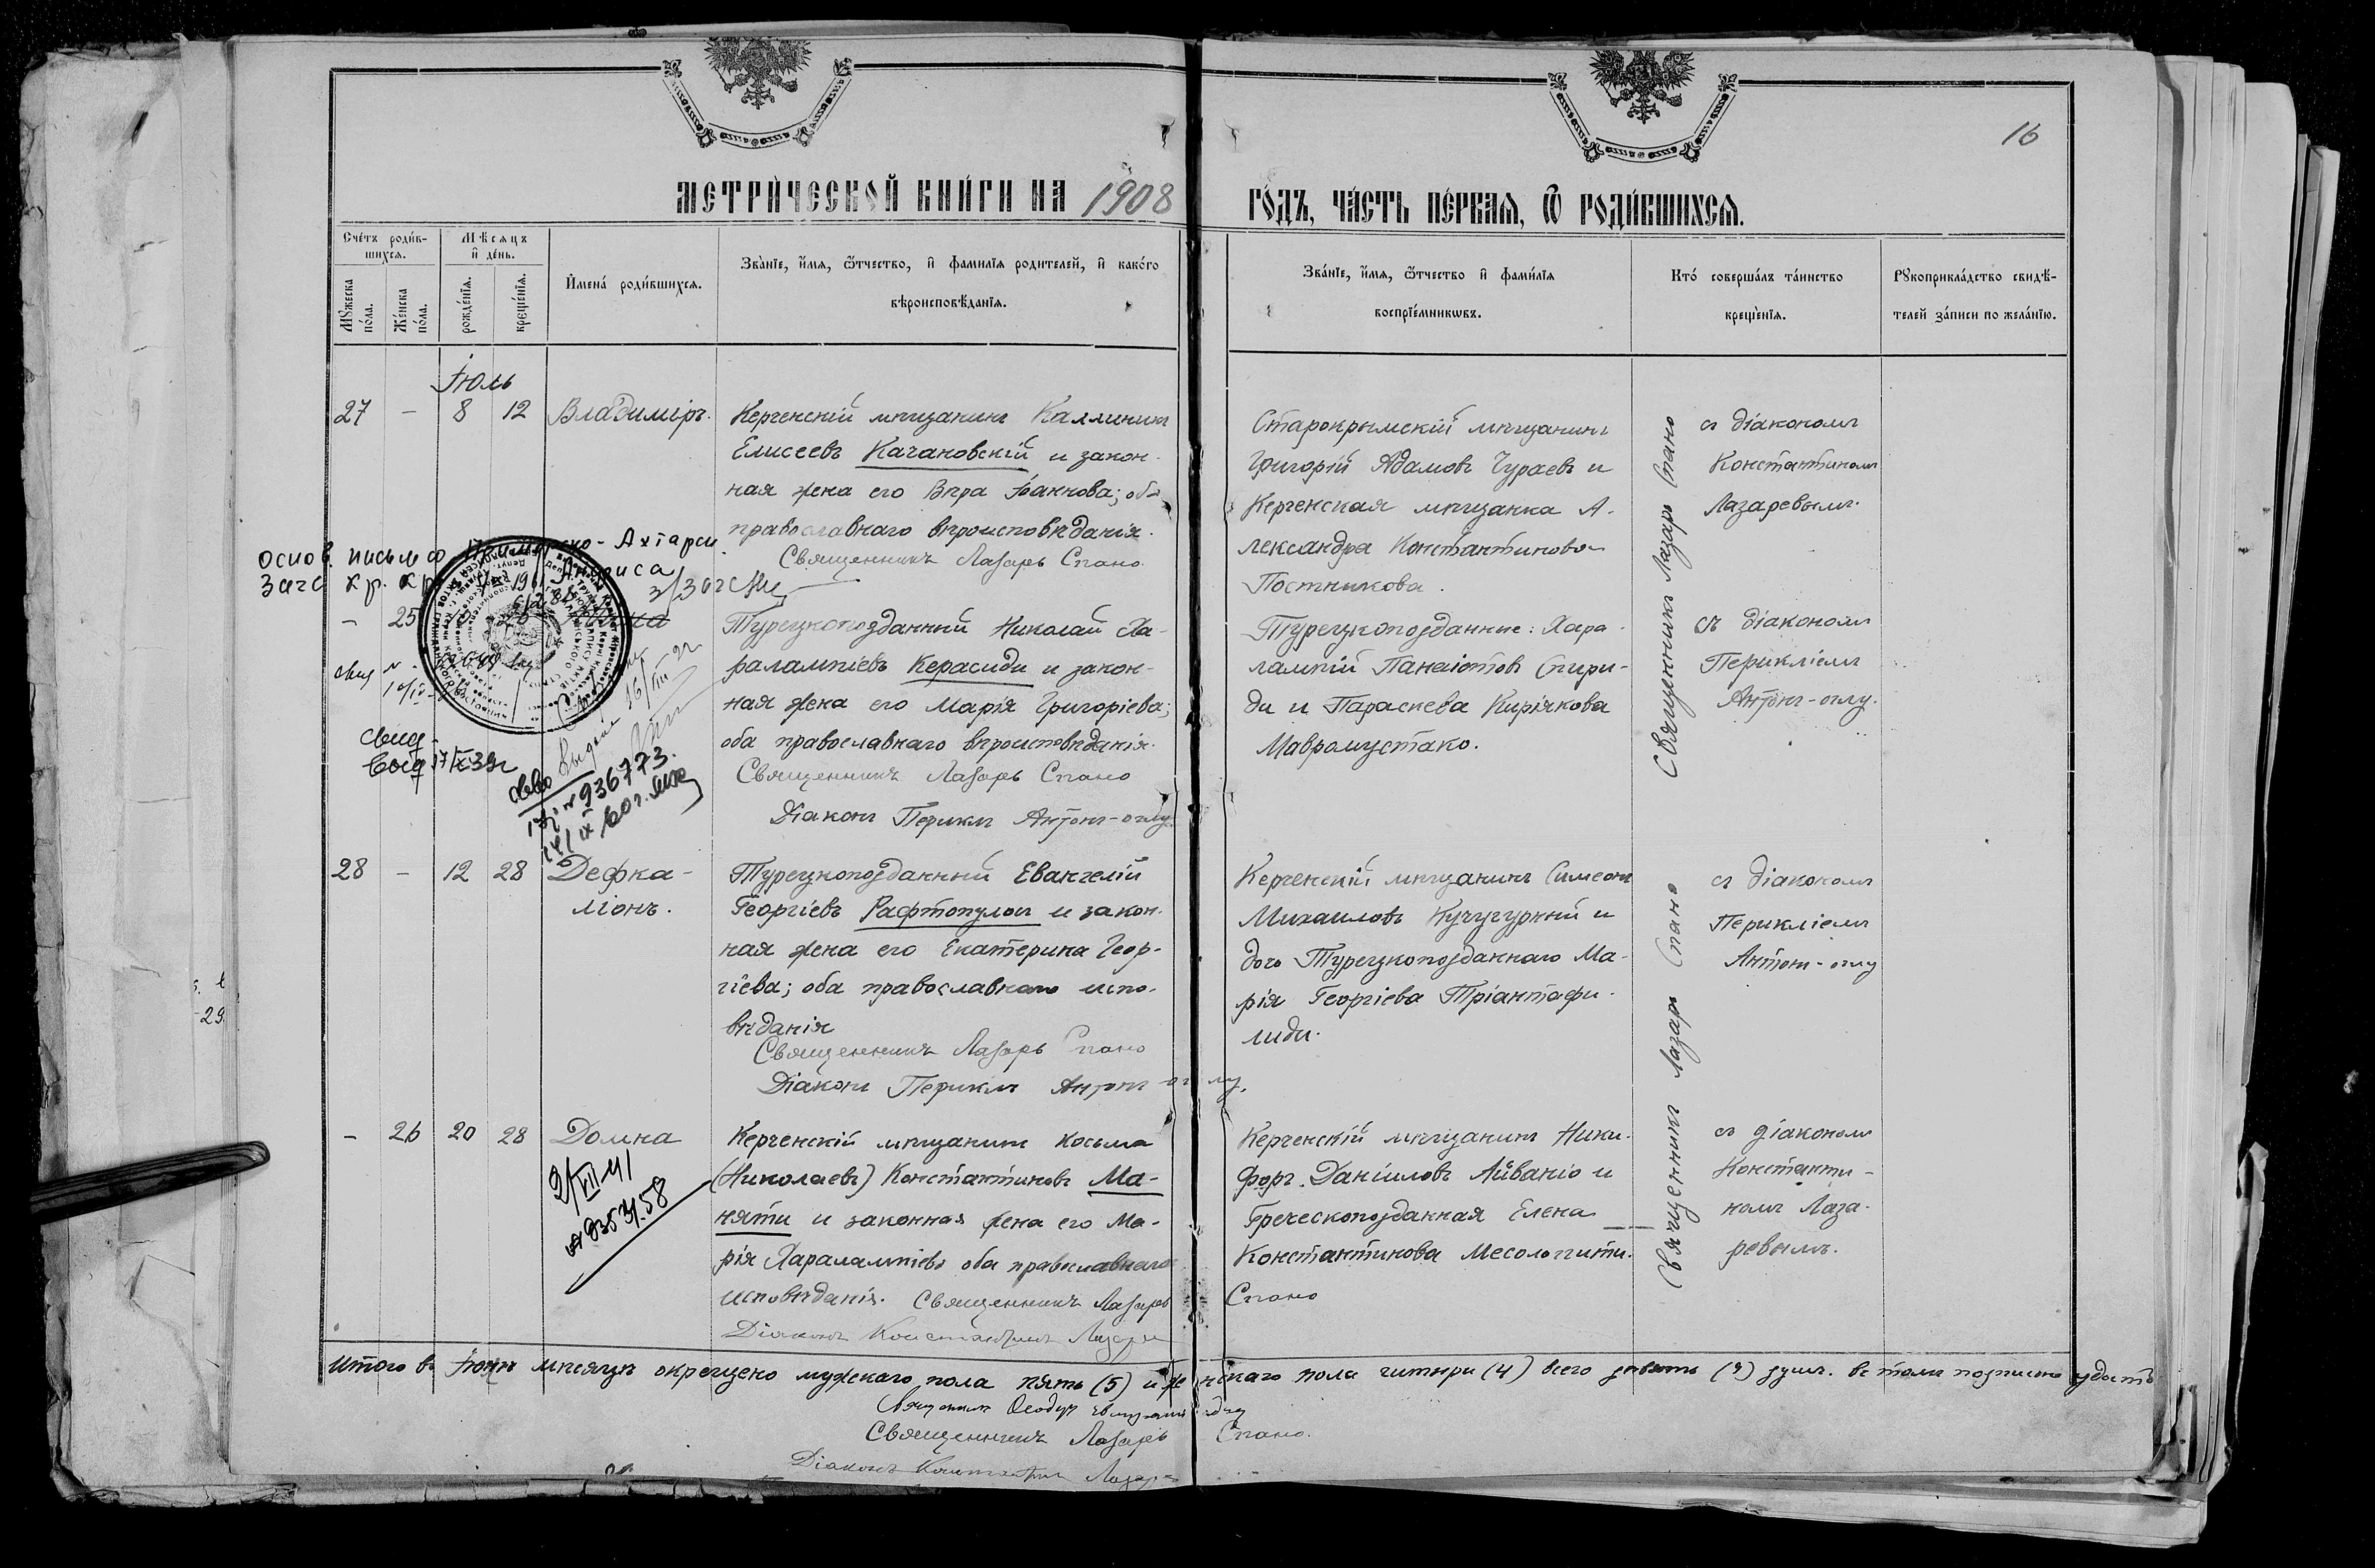 16
МЕТРИ́ЧЕСКОЙ КНИ́ГИ НА 1908
ГО́ДЪ, ЧА́СТЬ ПЕ́РВАЯ, Ѿ РОДИ́ВШИХСЯ.
Сче́тъ роди́в-
шихся.
Му́жеска
по́ла.
Же́нска
по́ла.
Мѣ́сяцъ
и҆ де́нь.
рожде́нїя.
креще́нїя.
И҆мена̀ роди́вшихся.
Зва́нїе, и҆́мя, ѻ҆́тчество, и҆ фами́лїя родителей, и҆ како́го
вѣроисповѣ́данїя.
Зва́нїе, и҆́мя, ѻ҆́тчество и҆ фами́лїя
воспрїе́мникѡвъ.
Кто́ соверша́лъ та́инство
креще́нїя.
Рꙋкоприкла́дство свидѣ́-
телей за́писи по жела́нїю.
Іюль
27 - 8 12 Владиміръ.
Керченскій мѣщанинъ Каллиникъ
Елисеевъ Качановскій и закон-
ная жена его Вѣра Іоаннова; оба
православнаго вѣроисповѣданія.
Священникъ Лазарь Спано
Старокрымскій мѣщанинъ
Григорій Адамовъ Чураевъ и
Керченская мѣщанка А-
лександра Константинова
Постникова.
Священникъ Лазарь Спано
съ діакономъ
Константиномъ
Лазаревымъ.
основ. письмо Приморско-Ахтарск
Загс Кр. Кр. Анфиса
- 25
Турецкоподданный Николай Ха-
ралампіевъ Керасиди и закон-
ная жена его Марія Григоріева;
оба православнаго вѣроисповѣданія.
Священникъ Лазарь Спано
Діаконъ Периклъ Антонъ-оглу
Турецкоподданные: Хара-
лампій Панаіотовъ Спири-
ди и Параскева Киріякова
Мавромустако.
съ діакономъ
Перикліемъ
Антонъ-оглу.
свид
№ 936773.
28 - 12 28 Дефка-
ліонъ.
Турецкоподданный Евангелій
Георгіевъ Рафтопулосъ и закон-
ная жена его Екатерина Геор-
гіева; оба православнаго испо-
вѣданія
Священникъ Лазарь Спано
Діаконъ Периклъ Антонъ-оглу.
Керченскій мѣщанинъ Симеонъ
Михаиловъ Кучугурный и
дочь Турецкоподданнаго Ма-
рія Георгіева Тріантафи-
лиди.
Священникъ Лазарь Спано
съ діакономъ
Перикліемъ
Антонъ-оглу
- 26 20 28 Домна
Керченскій мѣщанинъ Косьма
(Николаевъ) Константиновъ Ма-
няти и законная жена его Ма-
рія Харалампіева оба православнаго
исповѣданія. Священникъ Лазарь Спано
Діаконъ Константинъ Лазаре
Керченскій мѣщанинъ Ники-
форъ Даніиловъ Айваніо и
Греческоподданная Елена
Константинова Месологгити.
съ діакономъ
Константи-
номъ Лаза-
ревымъ.
Итого въ мѣсяцѣ окрещено мужескаго пола пять (5) и женскаго пола читыри (4) всего девять (9) душъ. въ томъ подписью
Священникъ Лазарь Спано.
Діаконъ Константинъ Лазаре